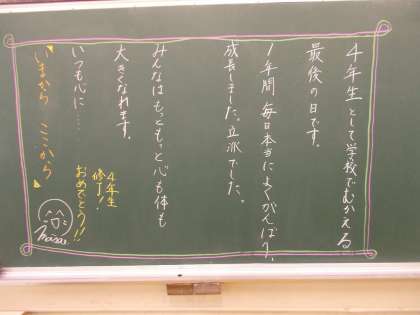 4年生として学校でむかえる
最後の日です。
1年間毎日本当によくがんばり、
成長しました。立派でした。
みんなはもっともっと心も体も
大きくなれます。
いつも心に……
いまから ここから
4年生
修了!
おめでとう!!
masae